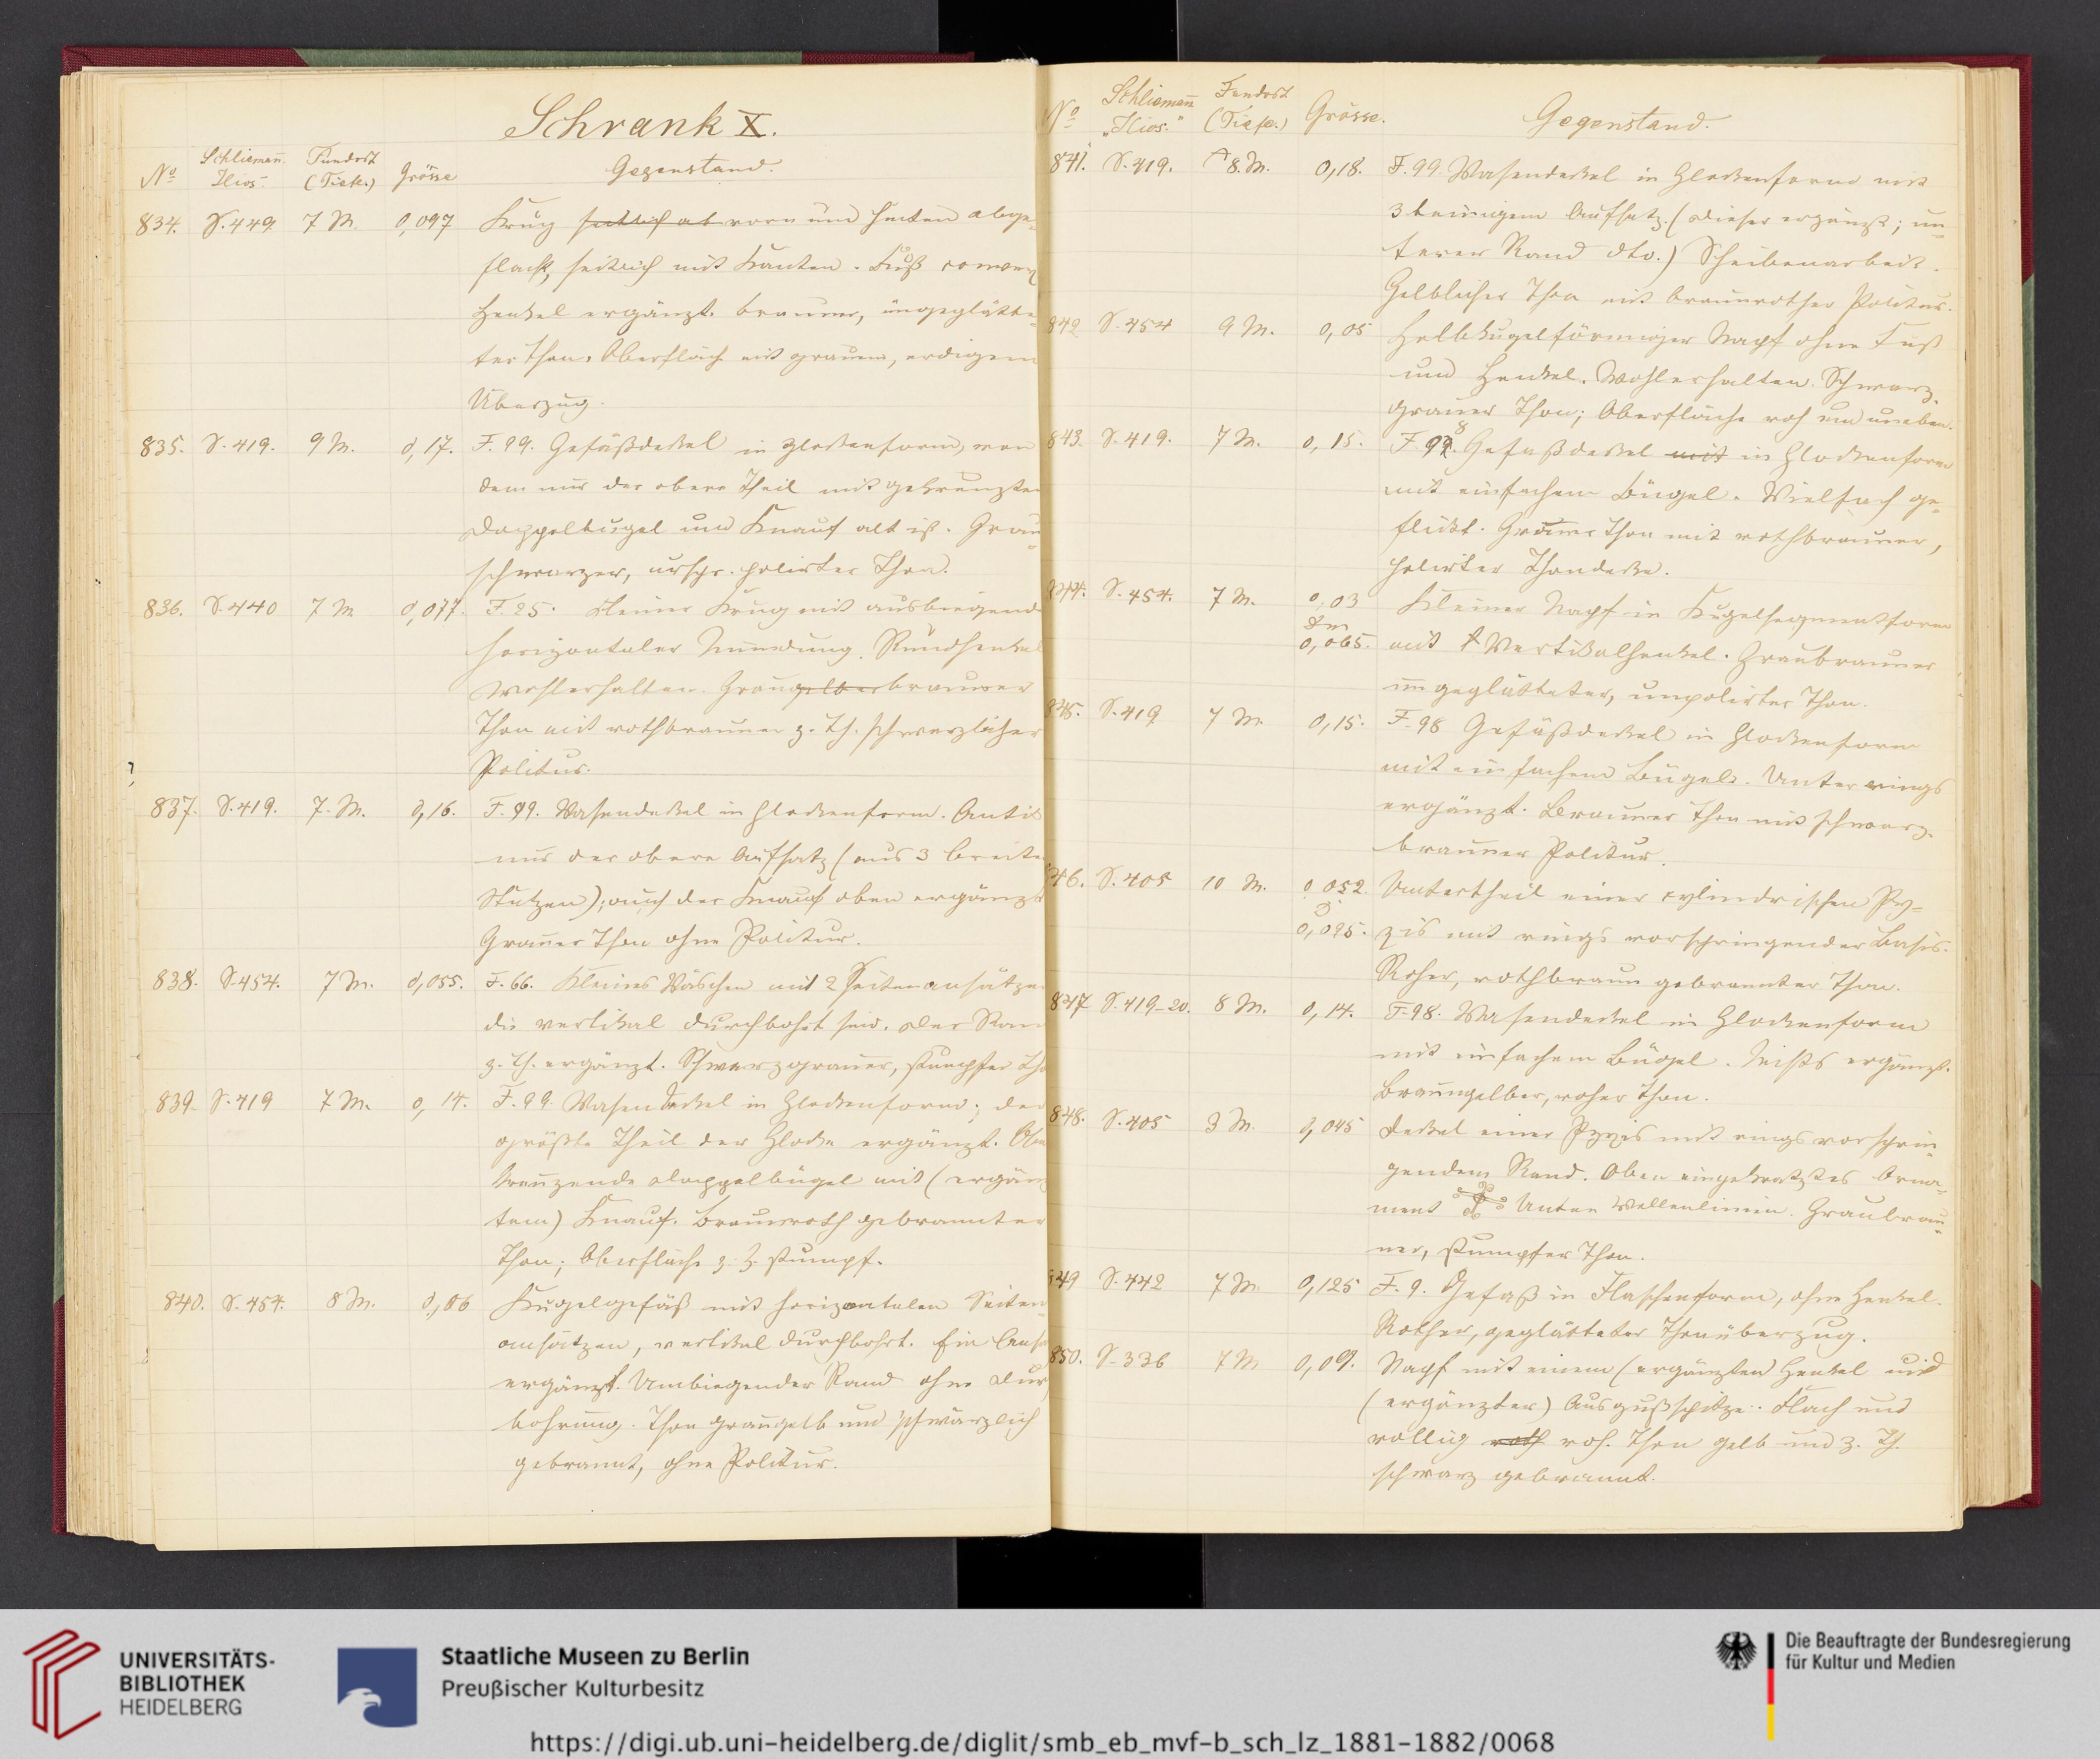 Schrank X.
No Schliemann Ilios. Fundort (Tiefe.) Grösse Gegenstand.
834. S. 449. 7 M. 0,097 Krug seitlich ab vorn und hinten abge-
flacht, seitlich mit Kanten. Fuß convex
Henkel ergänzt. brauner, ungeglätte-
ter Thon, Oberfläch mit grauem, erdigem
Überzug.
835. S. 419. 9 M. 0,17. F. 99. Gefäßdeckel in Glockenform, von
dem nur der obere Theil mit gekreuzten
Doppelbügel und Knauf alt ist. Grau
schwarzer, urspr. polirter Thon.
836. S. 440 7 M 0,077. F. 25. kleiner Krug mit ausbiegend
horizontaler Mündung. Rundhenkel
Wohlerhalten. Graugelberbrauner
Thon mit rothbrauner z. Th. schwarzlicher
Politur.
837. S. 419. 7. M. 0,16. F. 99. Vasendeckel in Glockenform. Antik
nur der obere Aufsatz (aus 3 breiten
Stützen); auch der Knauf oben ergänzt
Grauer Thon ohne Politur.
838. S. 454. 7 M. 0,055. F. 66. Kleines Väschen mit 2 Seitenansätzen
die vertikal durchbohrt sind. Der Ran
z. Th. ergänzt. Schwarzgrauer, stumpfer Tho
839. S. 419 7 M. 0,14. F. 99. Vasendeckel in Glockenform; der
größte Theil der Glocke ergänzt. Oben
kreuzende Doppelbügel mit (ergänz
tem) Knauf. Braunroth gebrannter
Thon; Oberfläche z. Z. stumpf.
840. S. 454. 8 M. 0,06 Kugelgefäß mit horizontalen Seiten
ansätzen, vertikal durchbohrt. Ein Ansa
ergänzt. Umbiegender Rand ohne Dur
bohrung. Thon graugelb und schwärzlich
gebrannt, ohne Politur.
No Schliemann „Ilios." Fundort (Tiefe.) Grösse. Gegenstand.
841. S. 419. 8. M. 0,18. F. 99 Vasendeckel in Glockenform mit
3 beinigem Aufsatz. (dieser ergänzt; un-
terer Rand dto.) Scheibenarbeit.
Gelblicher Thon mit braunrother Politur.
842 S. 454 9 M. 0,05 Halbkugelförmiger Napf ohne Fuß
und Henkel. Wohlerhalten. Schwarz-
grauer Thon; Oberfläche roh und uneben.
843. S. 419. 7 M. 0,15. F. 98. Gefäßdeckel mit in Glockenform
mit einfachem Bügel. Vielfach ge-
flickt. Grauer Thon mit rothbrauner,
polirter Thondecke.
844. S. 454. 7 M. 0,03 Kleiner Napf in Kugelsegmentform
Dm
0,065. mit 1 Vertikalhenkel. Graubrauner
ungeglätteter, unpolirter Thon.
845. S. 419 7 M. 0,15. F. 98 Gefäßdeckel in Glockenform
mit einfachem Bügel. Unten rings
ergänzt. Brauner Thon mit schwarz-
brauner Politur.
846. S. 405 10 M. 0,052. Untertheil einer cylindrischen Py-
0,095. xis mit rings vorspringender Basis.
Roher, rothbraun gebrannter Thon.
847 S. 419-20. 8 M. 0,14. F. 98. Vasendeckel in Glockenform
mit einfachem Bügel. Nichts ergänzt.
Braungelber, roher Thon.
848. S. 405 3 M. 0,045 Deckel einer Pyxis mit rings vorsprin-
gendem Rand. Oben eingekratztes Orna-
ment Unten Wellenlinien. Graubrau-
ner, stumpfer Thon.
849 S. 442 7 M. 0,125 F. 9. Gefäß in Flaschenform, ohne Henkel.
Rother, geglätteter Thonüberzug.
850. S. 336 7 M 0,09. Napf mit einem (ergänzten) Henkel und
(ergänzter) Ausgußspitze. Flach und
völlig roth roh. Thon gelb und z. Th.
schwarz gebrannt.
UNIVERSITÄTS-
BIBLIOTHEK
HEIDELBERG
Staatliche Museen zu Berlin
Preußischer Kulturbesitz
Die Beauftragte der Bundesregierung
für Kultur und Medien
https://digi.ub.uni-heidelberg.de/diglit/smb_eb_mvf-b_sch_lz_1881-1882/0068